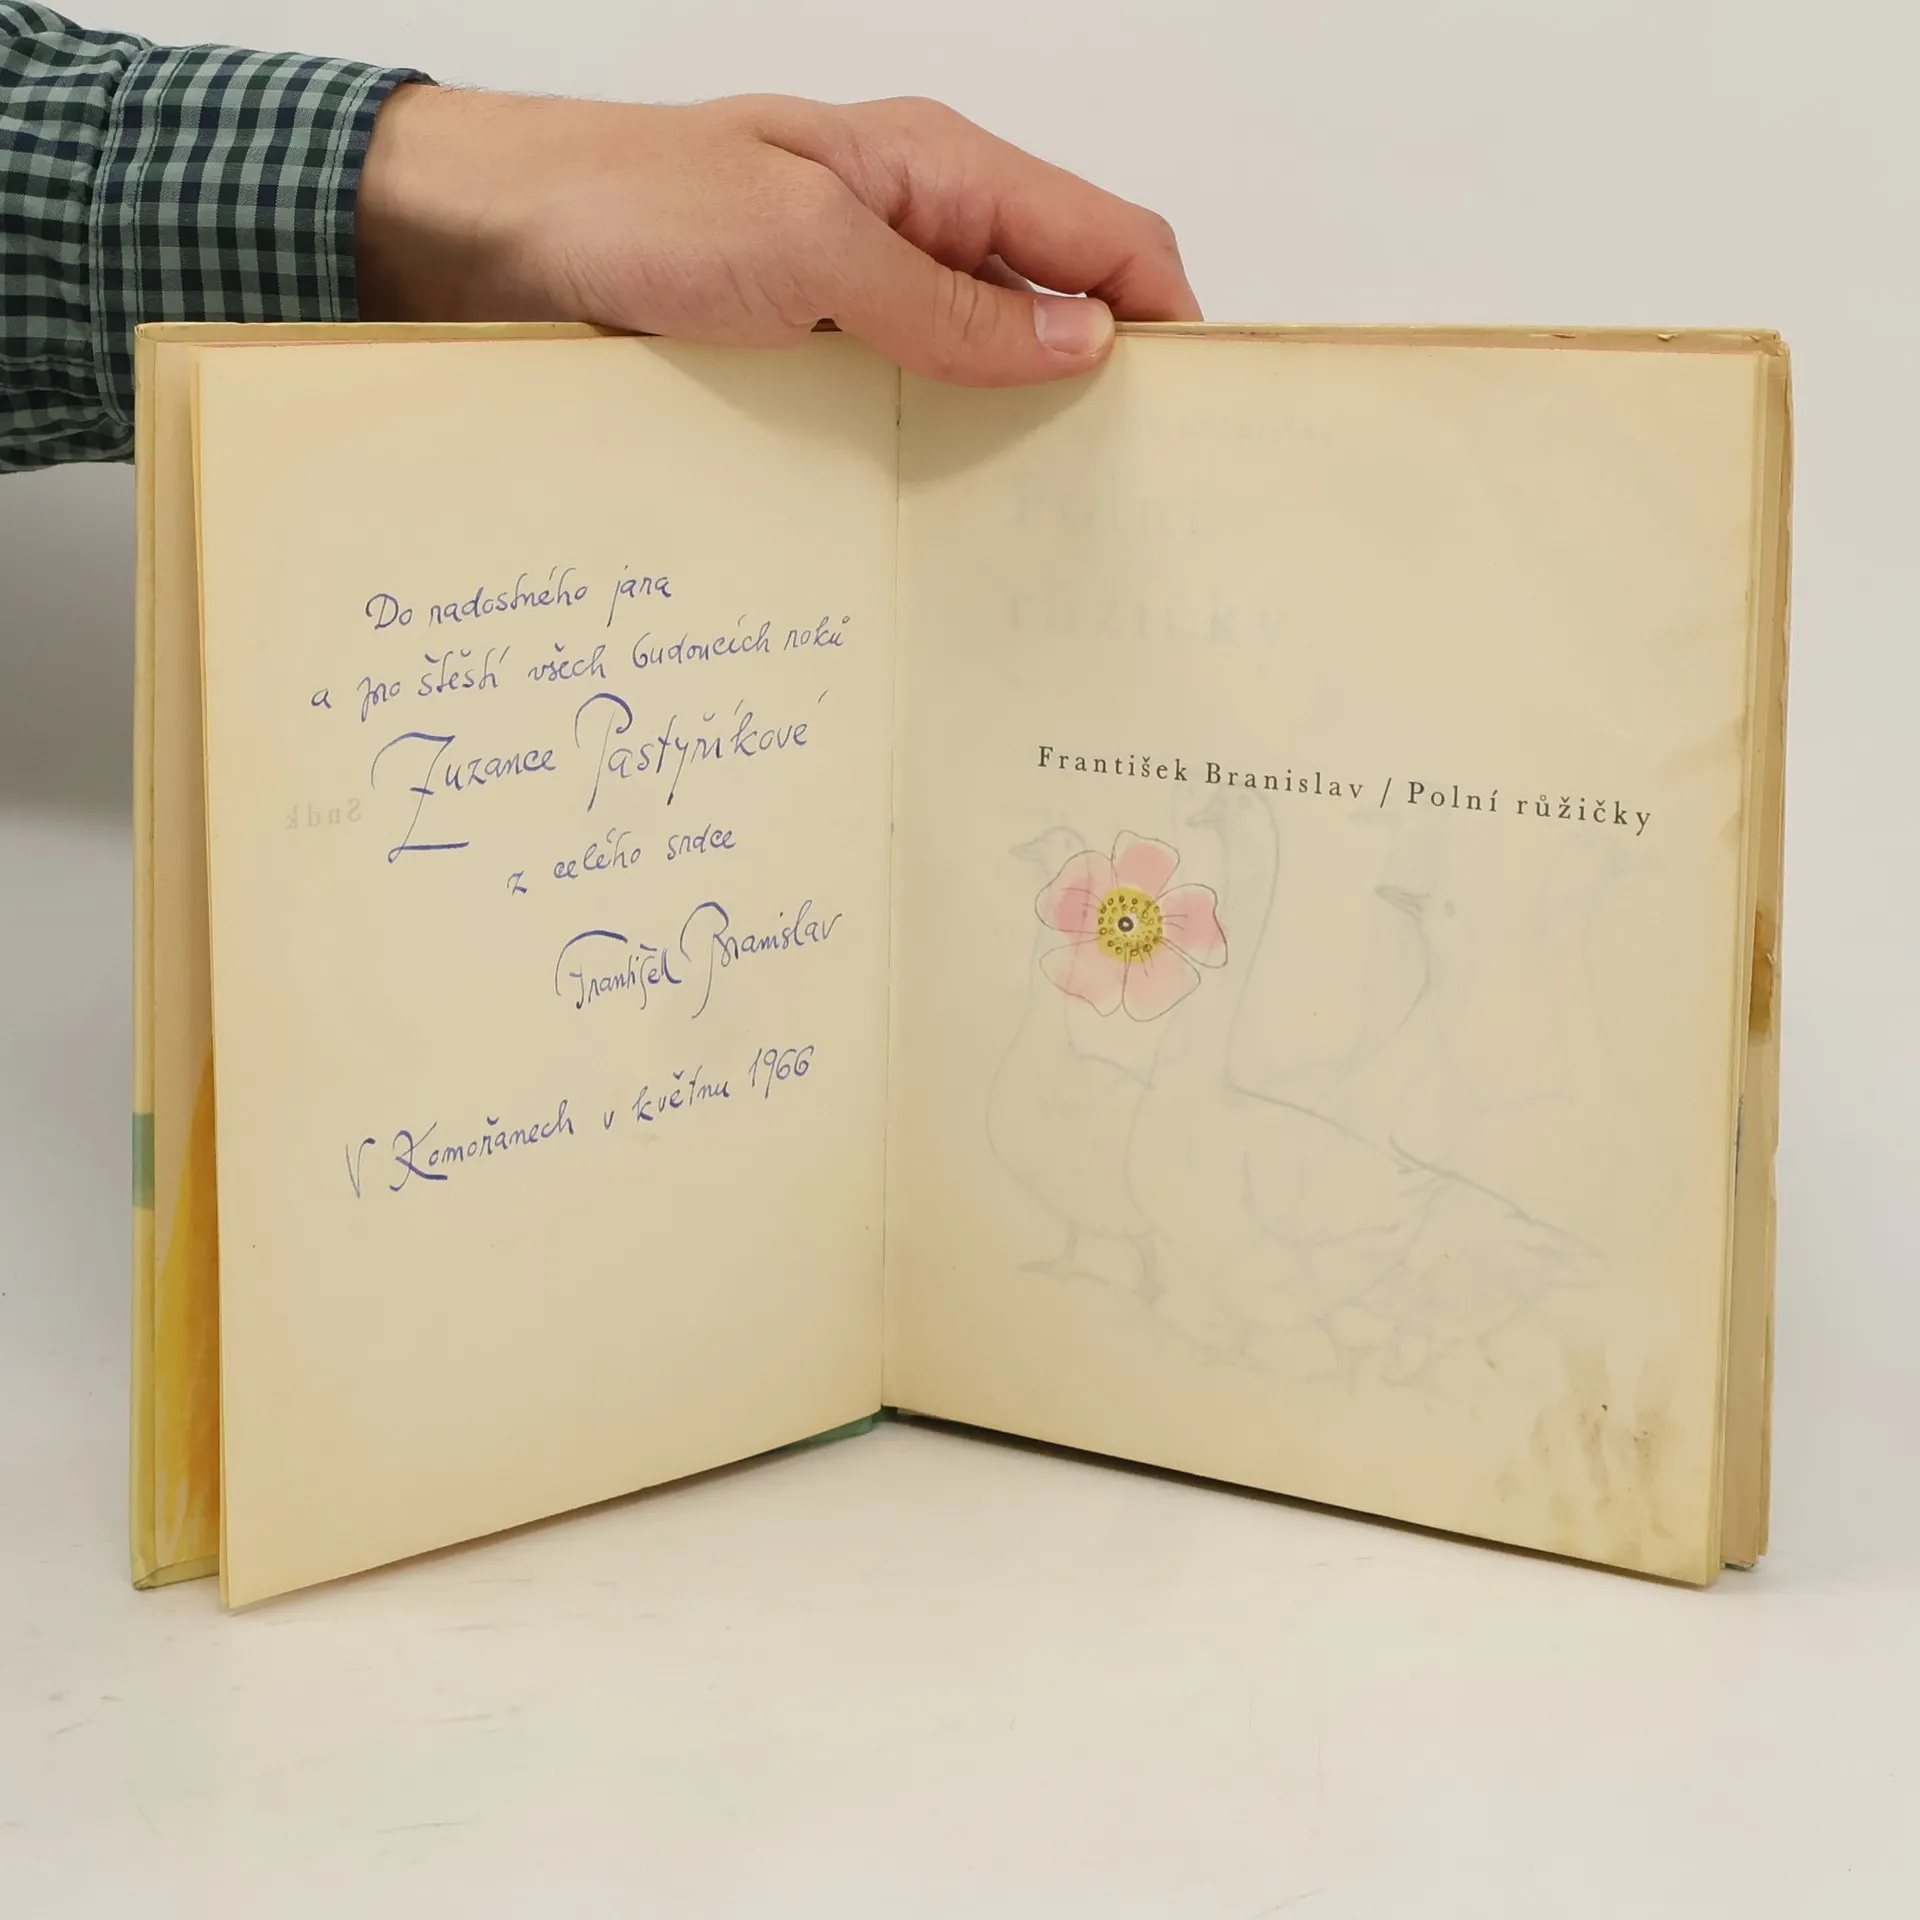 Do radostného jara
a pro štěstí všech budoucích roků
Zuzance Pastyříkové
z celého srdce
František Branislav
V Komořanech v květnu 1966
Sndk
Polní
růžičky
František Branislav / Polní růžičky